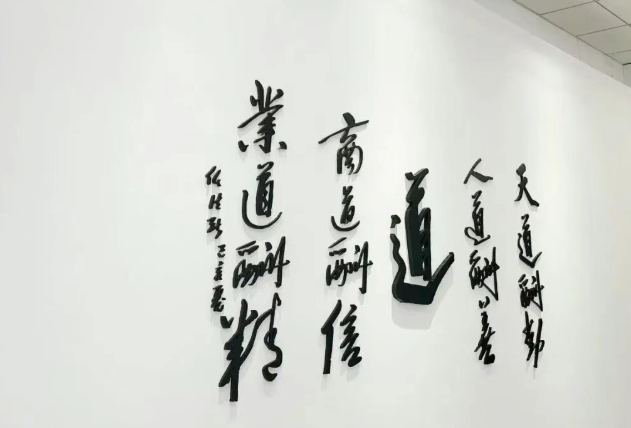 天道酬勤
人道酬善
道
商道酬信
業道酬精